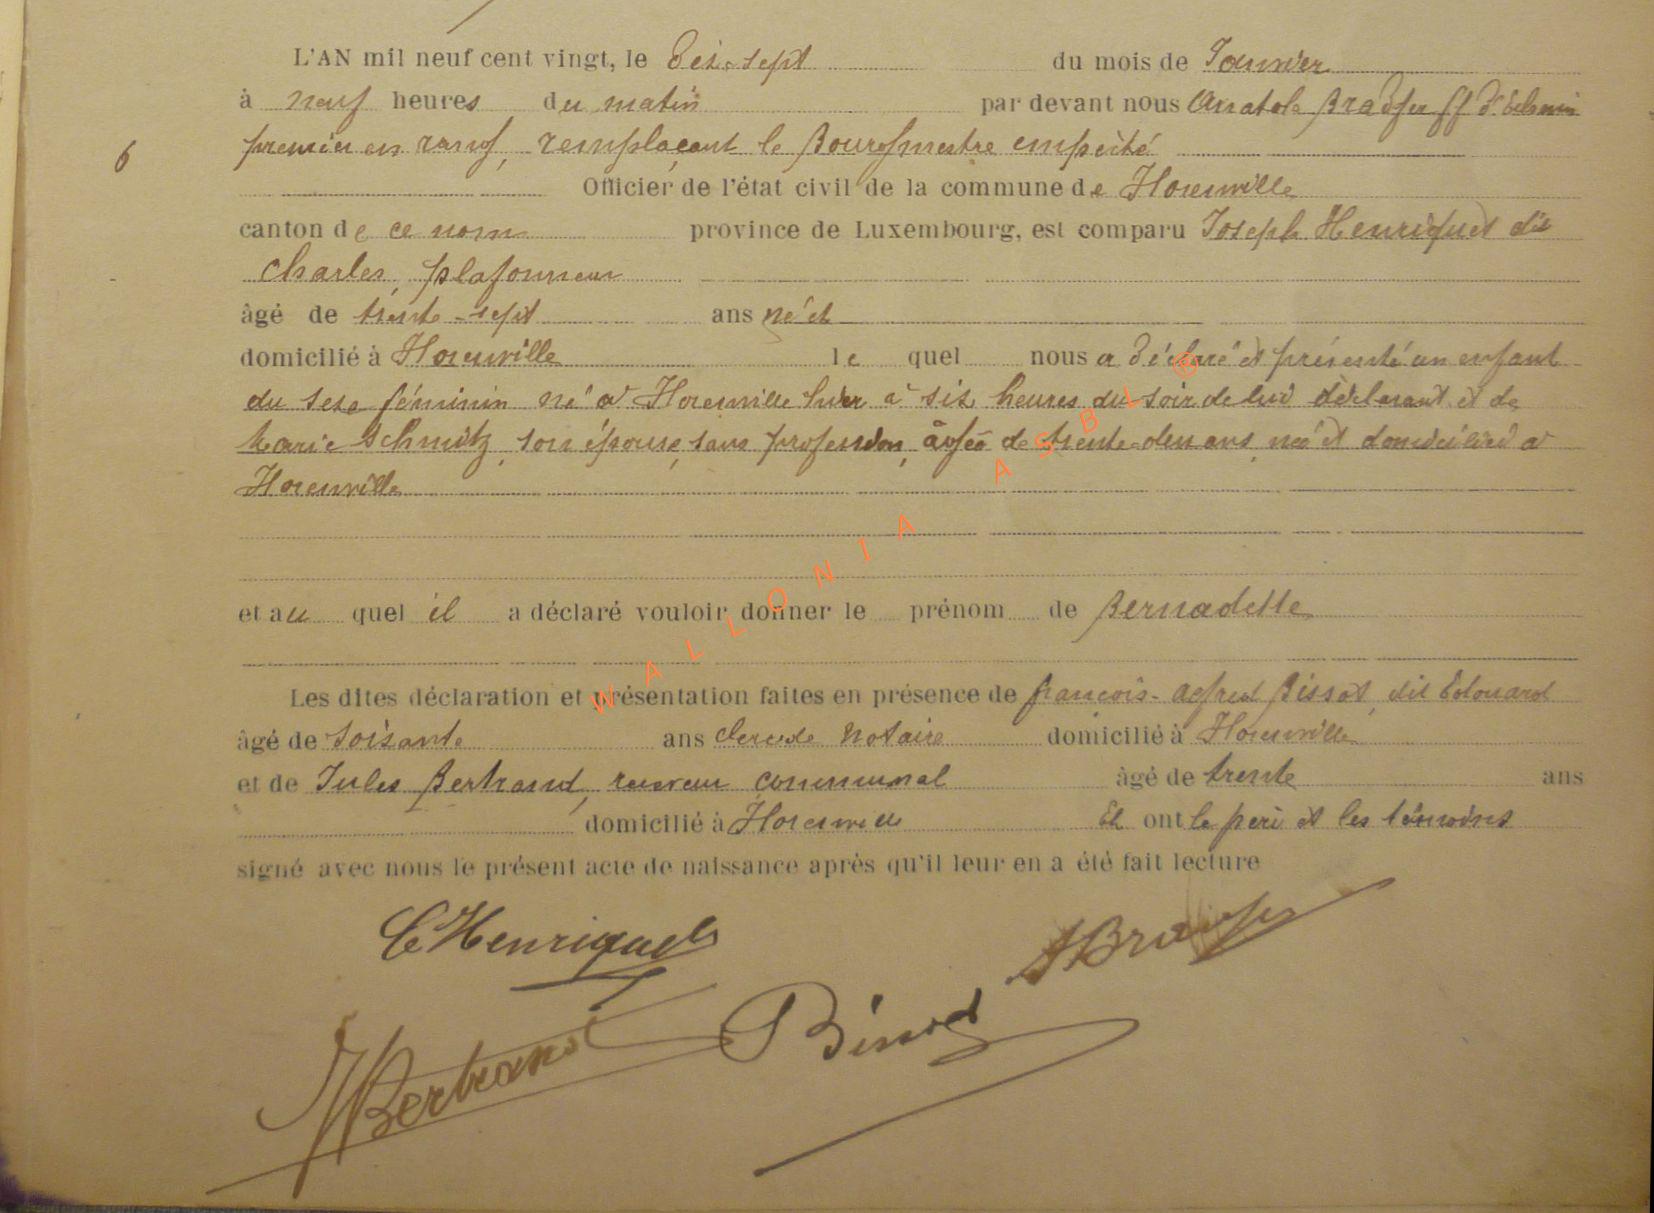 L'AN mil neuf cent vingt, le dix-sept du mois de Janvier
à neuf heures du matin par devant nous Anatole ff d'Echevin
6 premier en rang, remplaçant le Bourgmestre empêché
Officier de l'état civil de la commune de Florenville
canton de ce nom province de Luxembourg, est comparu Joseph Henriquet dit
Charles, plafonneur
âgé de trente-sept ans né et
domicilié à Florenville le quel nous a déclaré et présenté un enfant
du sexe féminin né à Florenville hier à six heures du soir de lui déclarant et de
Marie Schmitz, son épouse, sans profession, âgée de trente-deux ans, née et domiciliée à
Florenville
et au quel il a déclaré vouloir donner le prénom de Bernadette
Les dites déclaration et présentation faites en présence de françois-alfred dit Edouard
âgé de soixante ans clerc de Notaire domicilié à Florenville
et de Jules Bertrand, receveur communal âgé de trente ans
domicilié à Florenville Et ont le père et les témoins
signé avec nous le présent acte de naissance après qu'il leur en a été fait lecture
C Henriquet
JBertrand
WALLONIA ASBLB